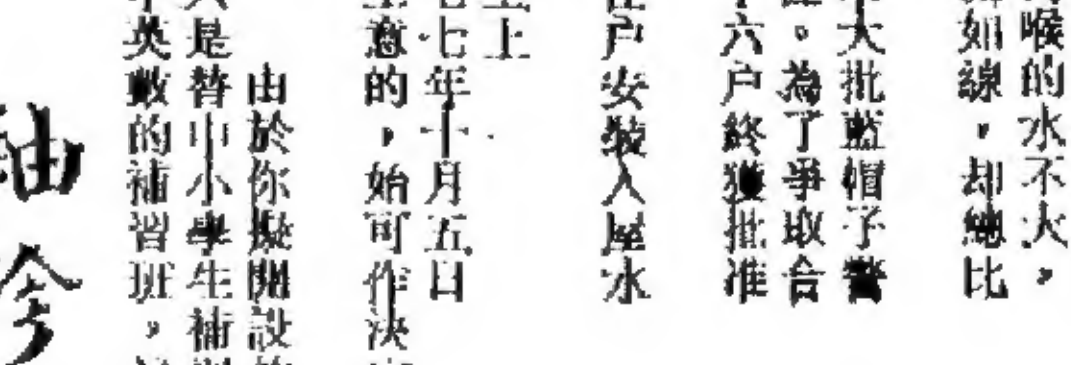 喉的水不大，
如線，却總比
大批藍帽子警
。為了爭取合
六户終獲批准
户安裝入屋水
上
七年十月五日
意的，始可作決
由於你擬開設
是替中小學生補
英數的補習班，